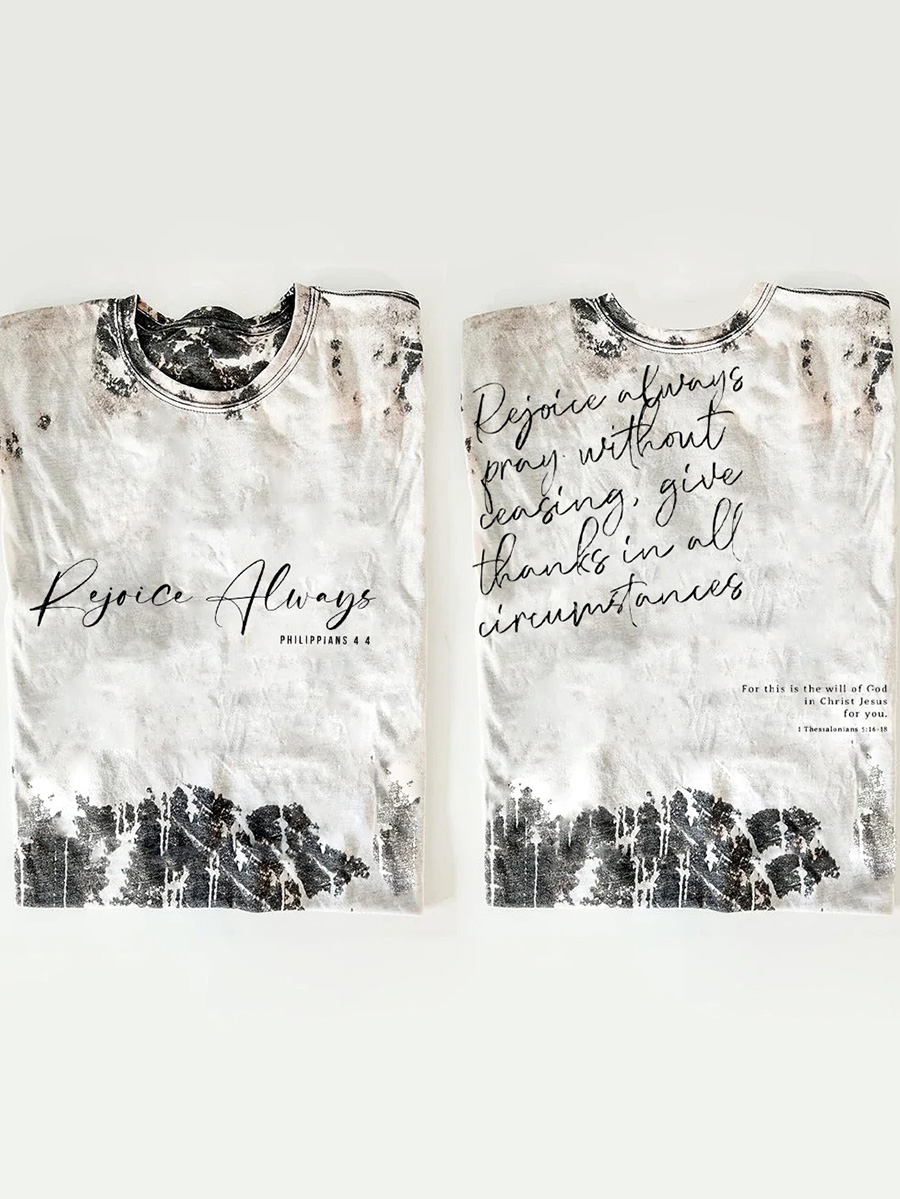 Rejoice Always
PHILIPPIANS 4 4
Rejoice always
pray without
ceasing, give
thanks in all
circumstances
For this is the will of God
in Christ Jesus
for you.
1 Thessalonians 5:16-18